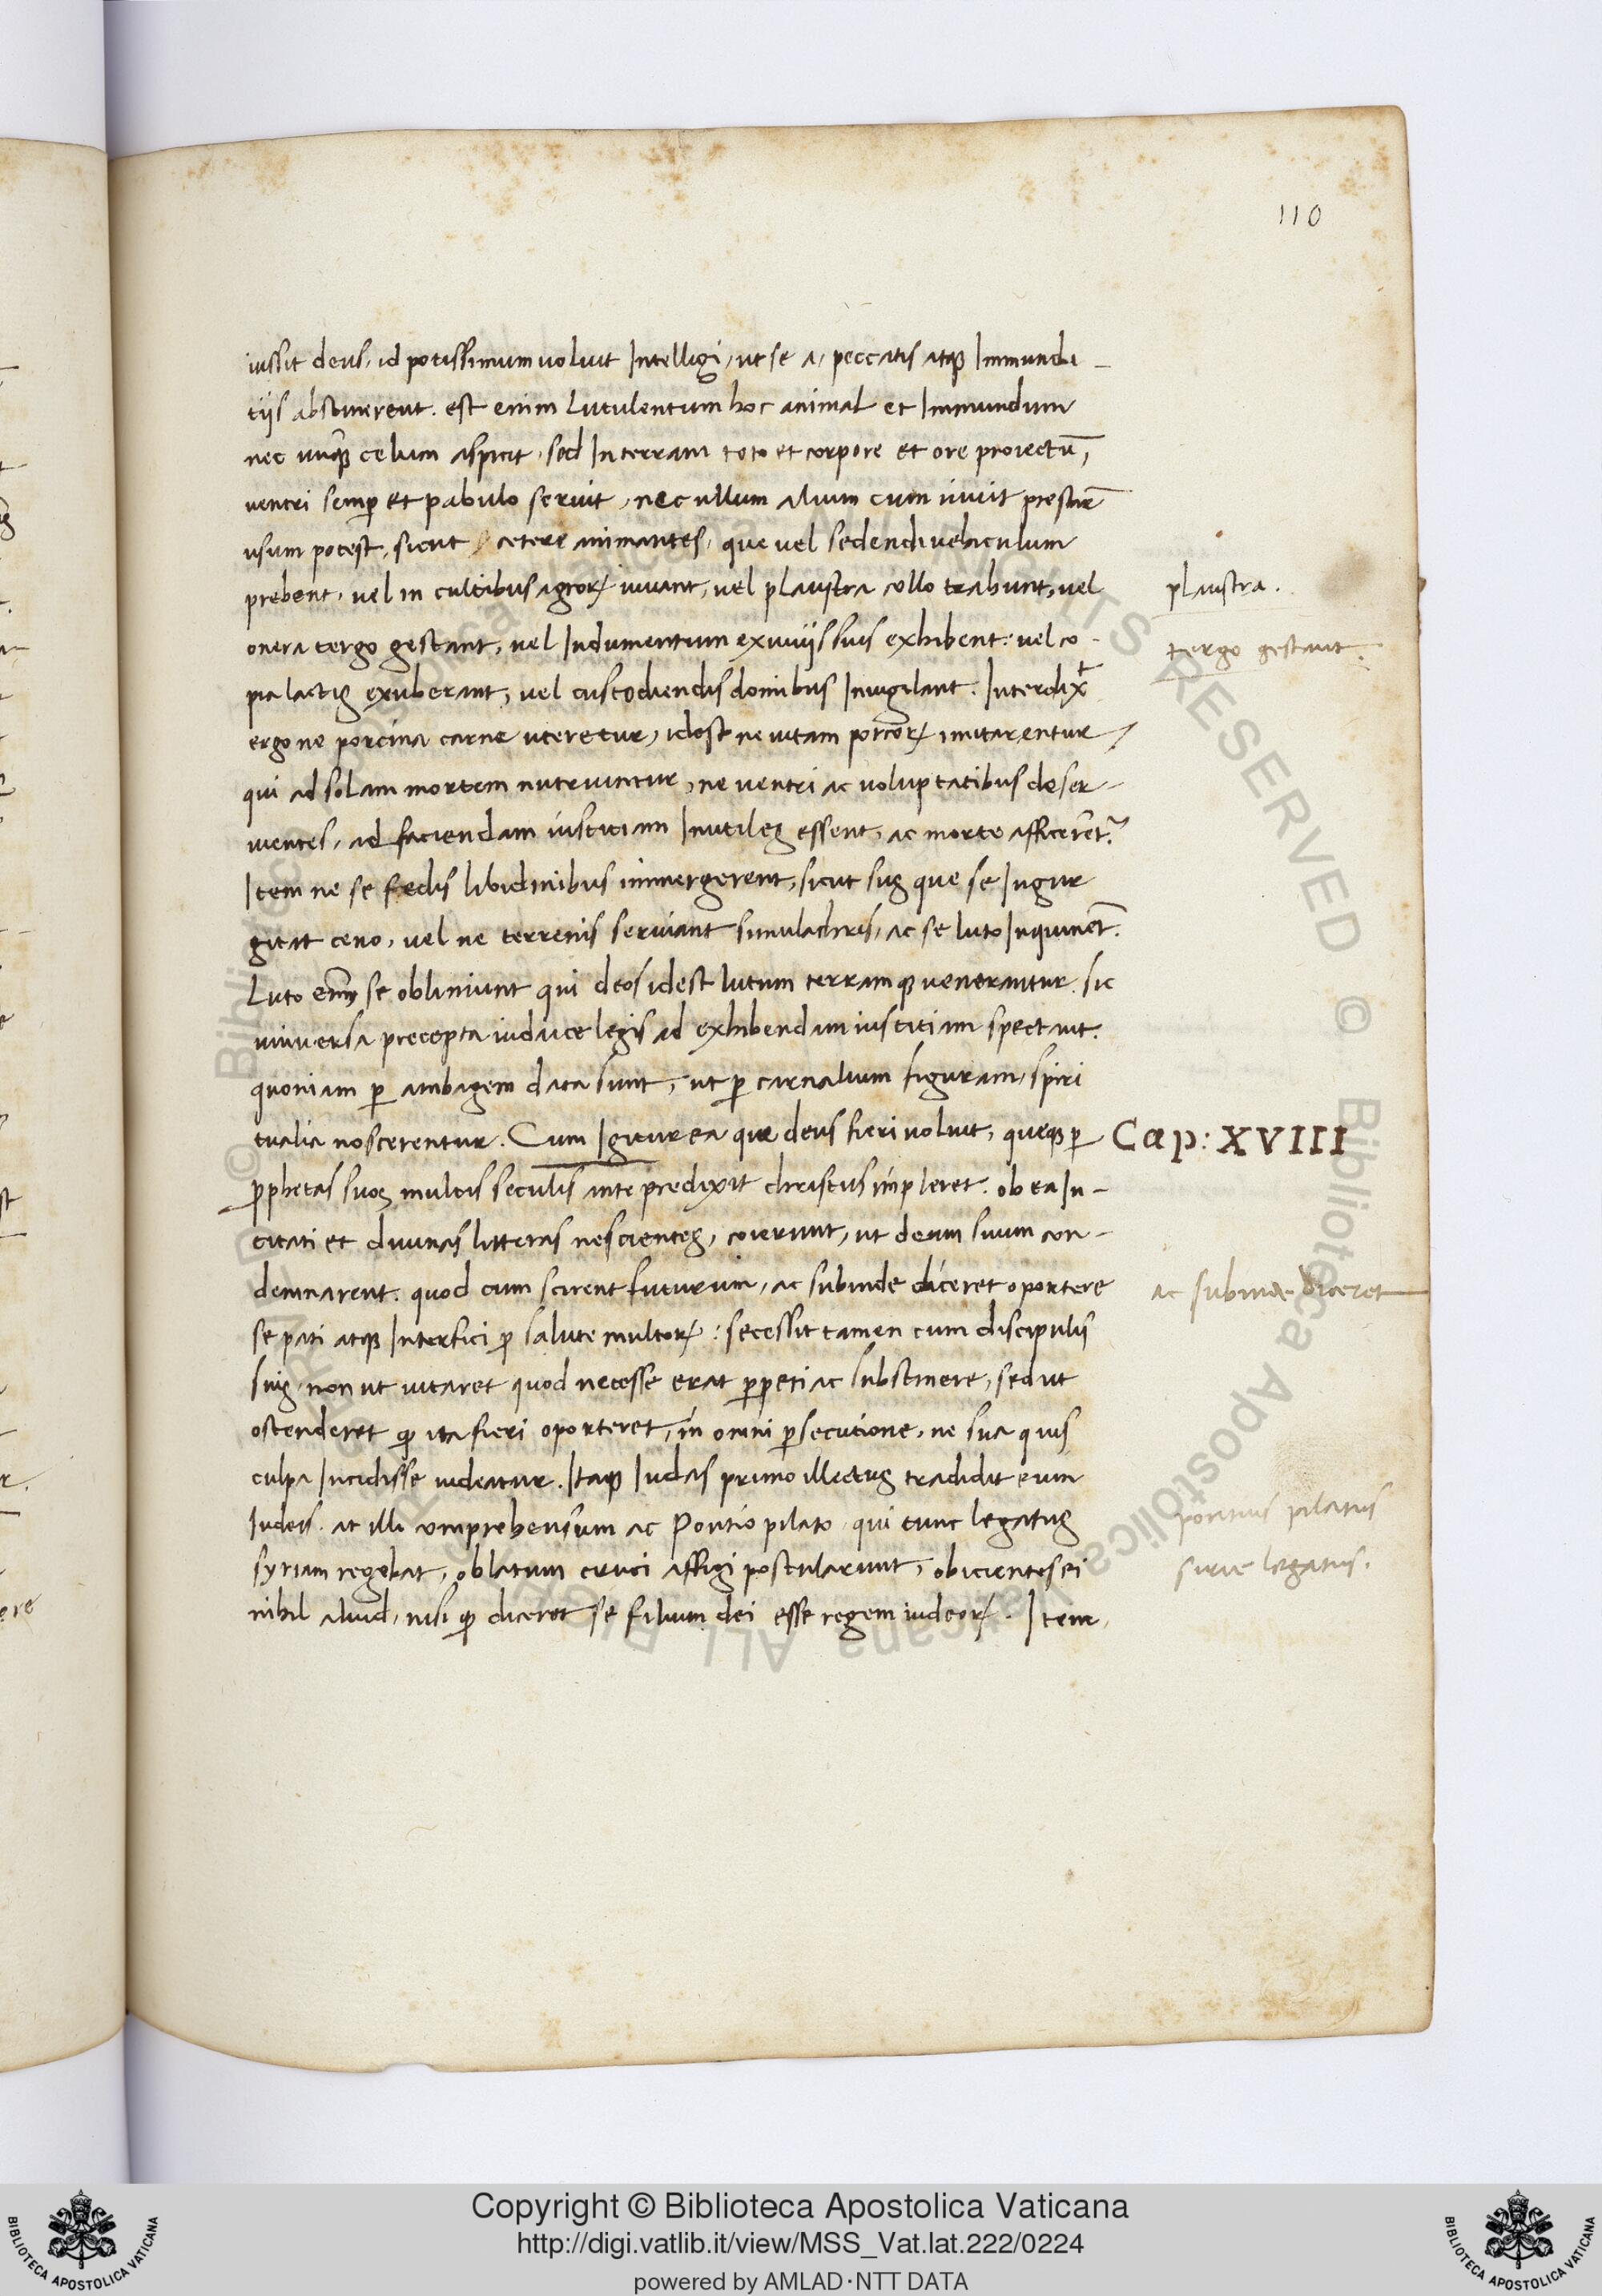 110
iussit deus, id potissimum voluit Intelligi, ut se a, peccatis atq; Immundi-
tijs abstinerent. est enim Lutulentum hoc animal et Immundum
nec unq̃ celum aspicit, sed In terram toto et corpore et ore proiectū,
ventri semp̱ et pabulo servit, nec ullum alium cum vivit prestar̄
usum potest, sicut cetere animantes, que vel sedendi vehiculum
prebent, vel in cultibus agroꝝ iuvant, vel plaustra collo trahunt, vel
onera tergo gestant, vel Indumentum exuvijs suis exhibent: vel co-
pia lactis exuberant, vel custodiendis domibus Invigilant. Interdixᵗ
ergo ne porcina carne uteretur, idest ne vitam porcoꝝ imitarentur
qui ad solam mortem nutriuntur, ne ventri ac voluptatibus deser-
vientes, ad faciendam iusticiam Inutiles essent, ac morte afficerēt.
Item ne se fedis libidinibus immergerent, sicut sus que se Ingur
gitat ceno, vel ne terrenis serviant simulachris, ac se luto Inquinēt.
Luto enī se obliniunt qui deos idest lutum terramq; venerantur. sic
universa precepta iudaice legis ad exhibendam iusticiam spectant.
quoniam ꝑ ambagem data sunt, ut ꝑ carnalium figuram, spiri
tualia noscerentur. Cum Igitur ea que deus fieri voluit, queq; ꝑ
ꝓphetas suos multis seculis ante predixit christus impleret. ob ea In-
citati et divinas litteras nescientes, coierunt, ut deum suum con-
demnarent. quod cum scirent futurum, ac subinde diceret oportere
se pati atq; Interfici ꝓ salute multoꝝ: secessit tamen cum discipulis
suis, non ut vitaret quod necesse erat ꝑpeti ac substinere, sed ut
ostenderet ꝙ ita fieri oporteret, in omni ꝑsecutione, ne sua quis
culpa Incidisse videatur. Itaq; Iudas primo illectus tradidit eum
Iudeis. at illi comprehensum ac Pontio pilato qui tunc legatus
syriam regebat, oblatum cruci affigi postularunt, obicientes ei
nihil aliud, nisi ꝙ diceret se filium dei esse regem iudeoꝝ. Item
plaustra.
tergo gestant.
Cap: XVIII
ac subinde diceret
pontius pilatus
sirie legatus.
Copyright © Biblioteca Apostolica Vaticana
http://digi.vatlib.it/view/MSS_Vat.lat.222/0224
powered by AMLAD·NTT DATA
BIBLIOTECA APOSTOLICA VATICANA
BIBLIOTECA APOSTOLICA VATICANA